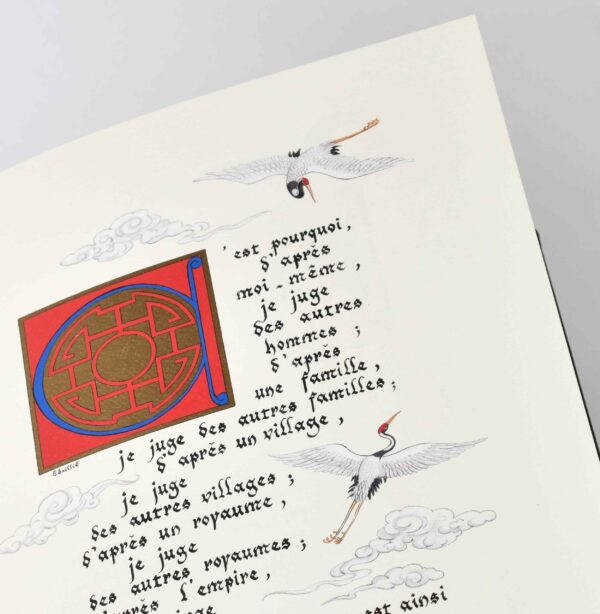 C'est pourquoi,
d'après
moi-même,
je juge
des autres
hommes ;
d'après
une famille,
je juge des autres familles ;
d'après un village,
je juge
des autres villages ;
d'après un royaume,
je juge
des autres royaumes ;
l'empire,
est ainsi